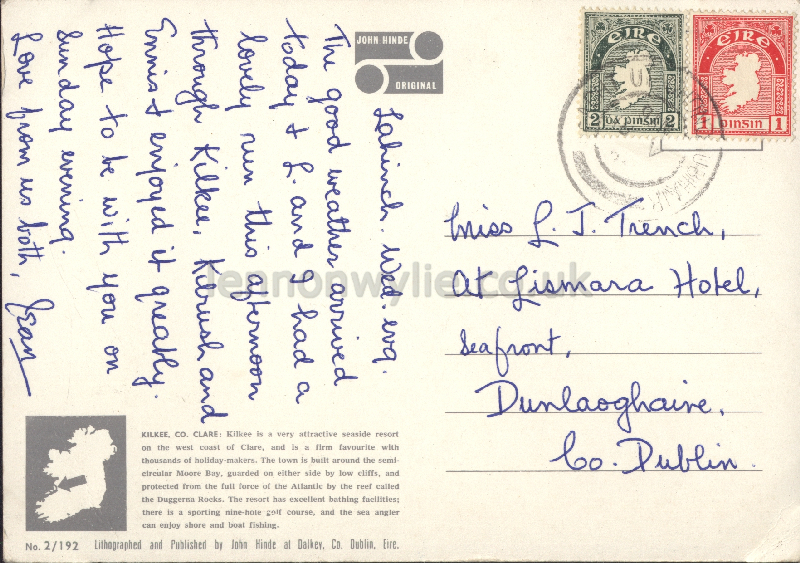 JOHN HINDE
ORIGINAL
Lahinch. Wed. evg.
The good weather arrived
today & L. and I had a
lovely run this afternoon
through Kilkee, Kilrush and
Ennis & enjoyed it greatly.
Hope to be with you on
Sunday evening.
Love from us both, Jean
EIRE
2 DÁ PINSIN 2
EIRE
1 PINSIN 1
Miss L. J. Trench,
At Lismara Hotel,
Seafront,
Dunlaoghaire,
Co. Dublin.
lennonwylie.co.uk
KILKEE, CO. CLARE: Kilkee is a very attractive seaside resort
on the west coast of Clare, and is a firm favourite with
thousands of holiday-makers. The town is built around the semi-
circular Moore Bay, guarded on either side by low cliffs, and
protected from the full force of the Atlantic by the reef called
the Duggerna Rocks. The resort has excellent bathing facilities;
there is a sporting nine-hole golf course, and the sea angler
can enjoy shore and boat fishing.
No. 2/192 Lithographed and Published by John Hinde at Dalkey, Co. Dublin, Eire.